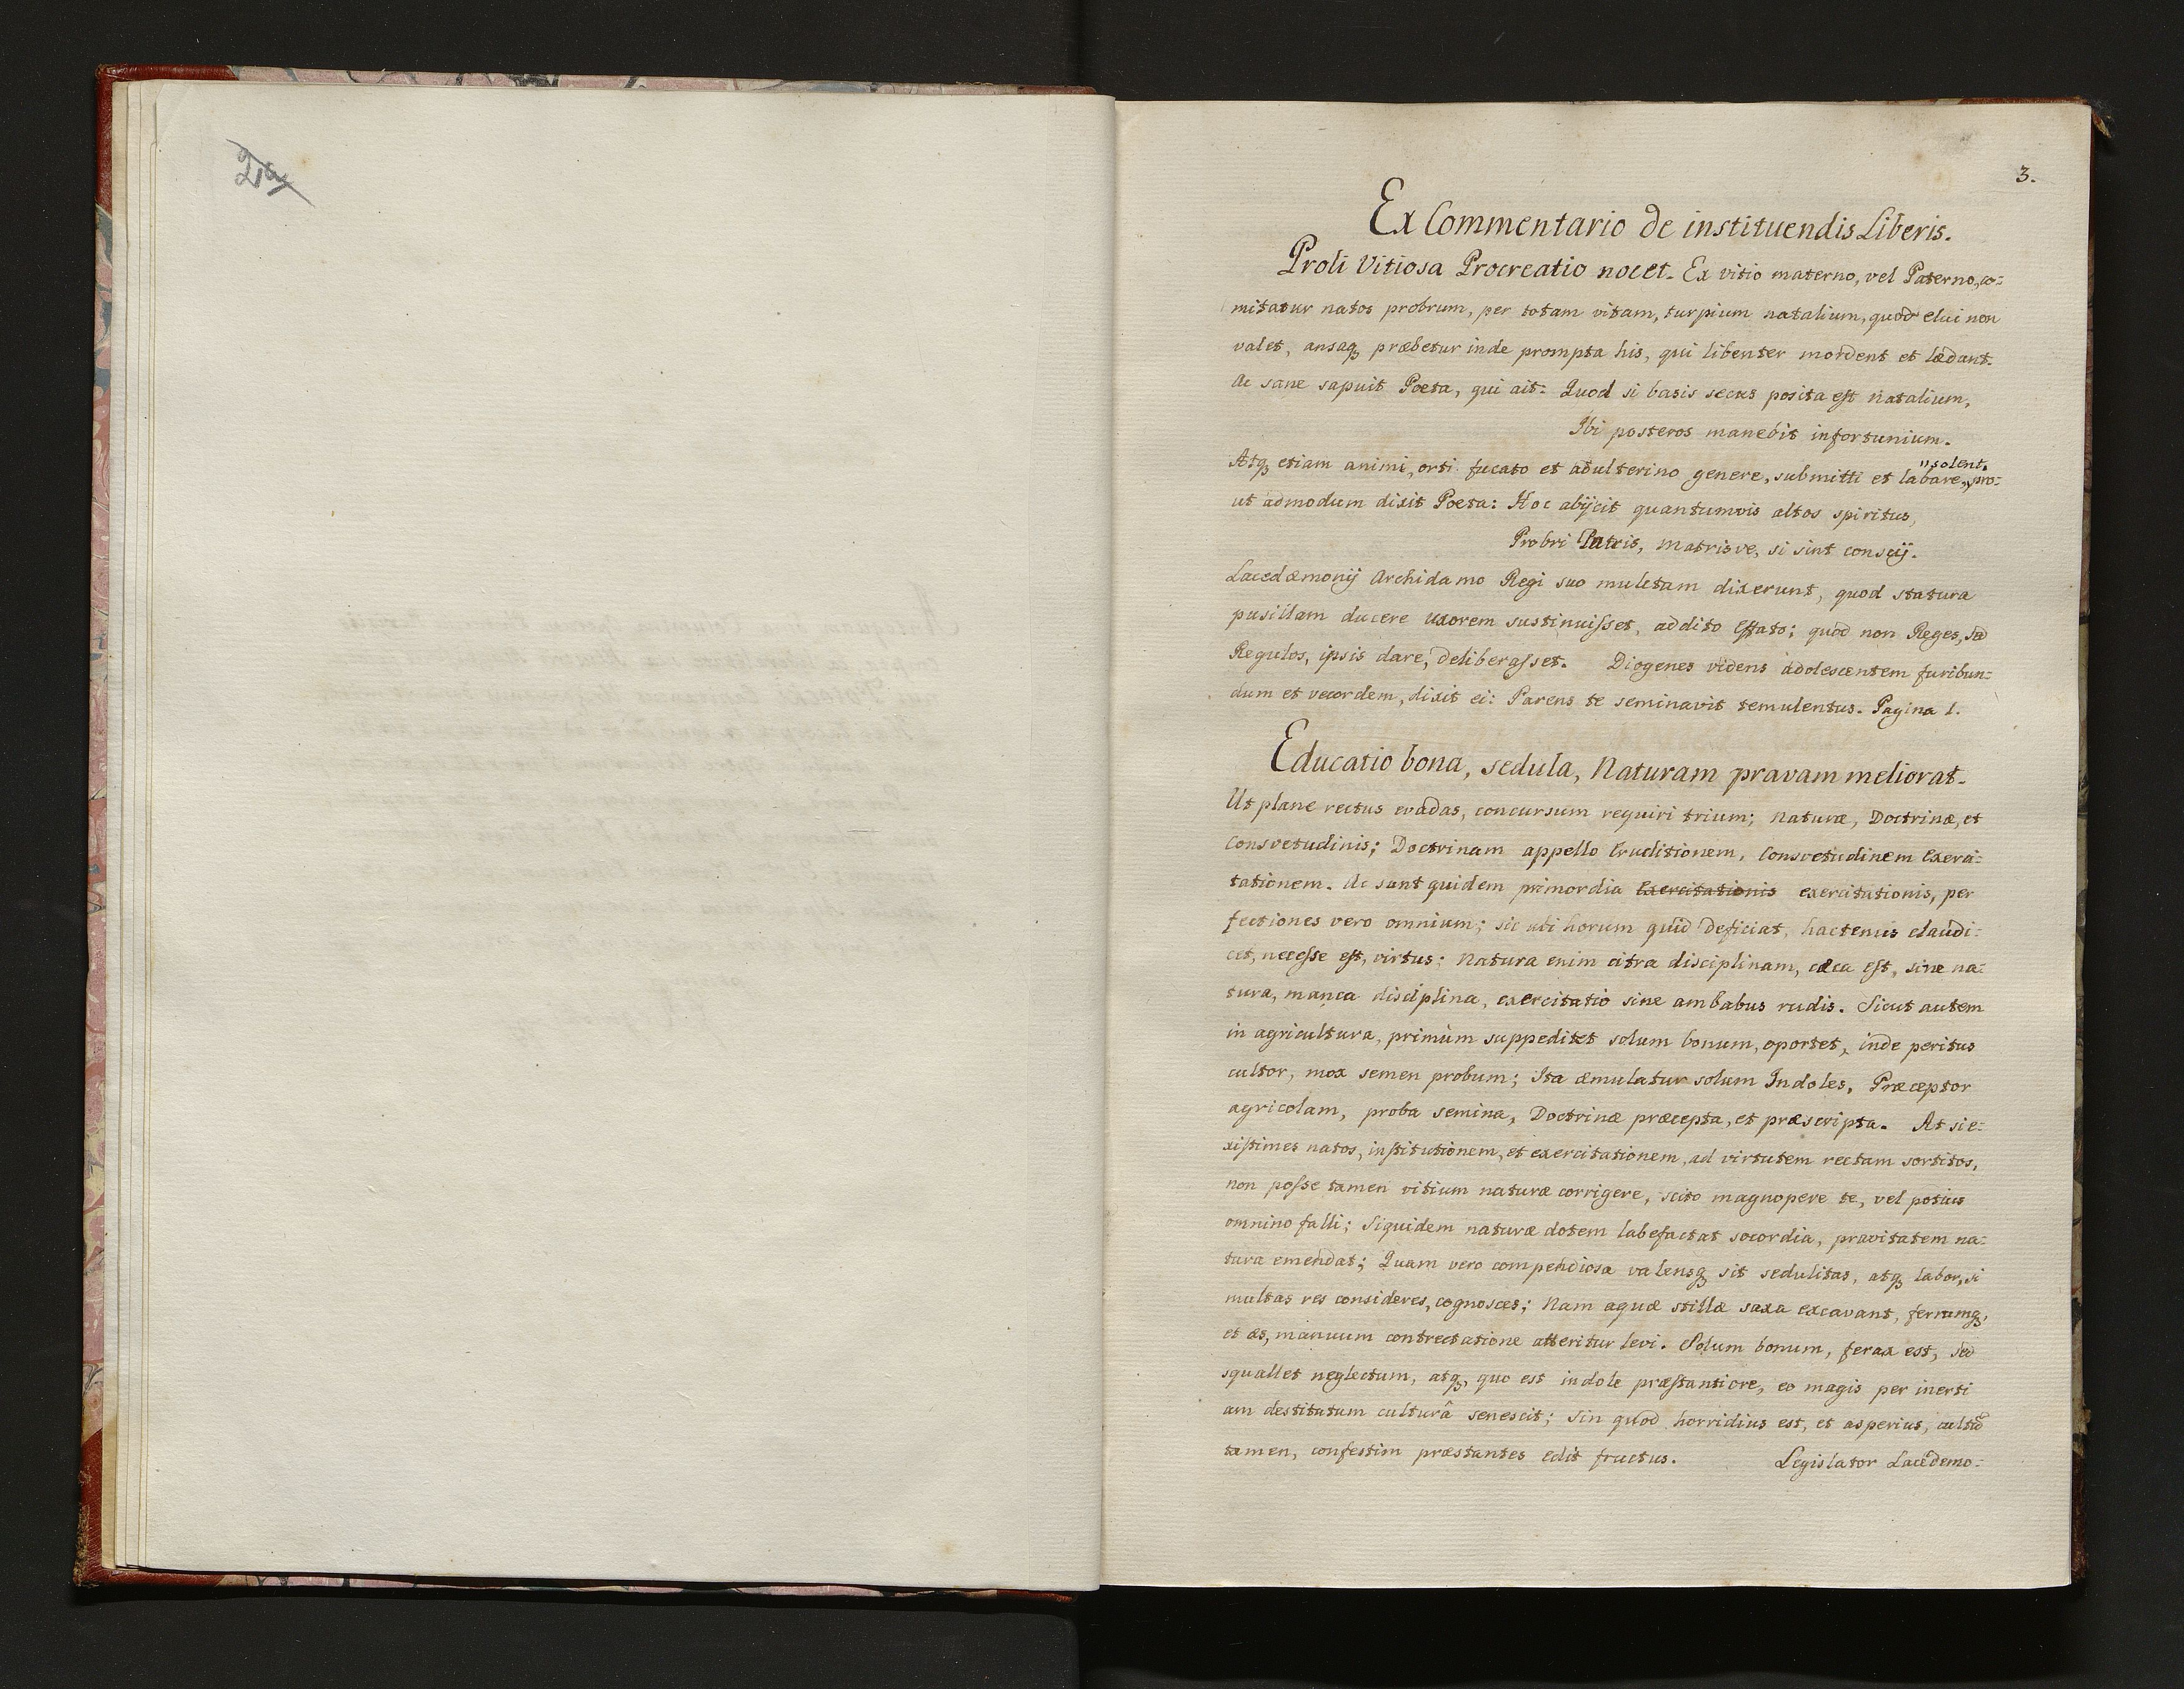 2a
3.
Ex Commentario de instituendis Liberis.
Proli Vitiosa Procreatio nocet. Ex vitio materno, vel Paterno, co=
mitatur natos probrum, per totam vitam, turpium natalium, quod elui non
valet, ansaq₃ præbetur inde prompta his, qui libenter mordent et lædunt.
Ac sane sapuit Poeta, qui ait: Quod si basis secus posita est natalium,
Ibi posteros manebit infortunium.
Atq₃ etiam animi, orti fucato et adulterino genere, submitti et labare „solent, pro=
ut admodum dixit Poeta: Hoc abijcit quantumvis altos spiritus,
Probri Patris, Matrisve, si sint conscij.
Lacedæmonij Archidamo Regi suo mulctam dixerunt, quod statura
pusillam ducere uxorem sustinuisset, addito Effato; quod non Reges, sed
Regulos, ipsis dare, deliberasset. Diogenes videns adolescentem furibun=
dum et vecordem, dixit ei: Parens te seminavit temulentus. Pagina 1.
Educatio bona, sedula, Naturam pravam meliorat.
Ut plane rectus evadas, concursum requiri trium; Naturæ, Doctrinæ, et
Consvetudinis; Doctrinam appello Eruditionem, Consvetudinem Exerci=
tationem. Ac sunt quidem primordia Exercitationis exercitationis, per
fectiones vero omnium; sic ubi horum quid deficiat, hactenus claudi=
cet, necesse est, virtus: Natura enim citra disciplinam, cæca est, sine na=
tura, manca disciplina, exercitatio sine ambabus rudis. Sicut autem
in agricultura, primùm suppeditet solum bonum, oportet, inde peritus
cultor, mox semen probum; Ita æmulatur solum Indoles, Præceptor
agricolam, proba semina, Doctrinæ præcepta, et præscripta. At si e=
xistimes natos, institutionem, et exercitationem, ad virtutem rectam sortitos,
non posse tamen vitium naturæ corrigere, scito magnopere te, vel potius
omnino falli; Siquidem naturæ dotem labefactat socordia, pravitatem na=
tura emendat; Quam vero compendiosa valensq₃ sit sedulitas, atq₃ labor, si
multas res consideres, cognosces; Nam aquæ stillæ saxa excavant, ferrumq₃,
et æs, manuum contrectatione atteritur levi. Solum bonum, ferax est, sed
squallet neglectum, atq₃, quo est indole præstantiore, eo magis per inerti
am destitutum culturâ senescit; Sin quod horridius est, et asperius, cultũ
tamen, confestim præstantes edit fructus. Legislator Lacedemo=